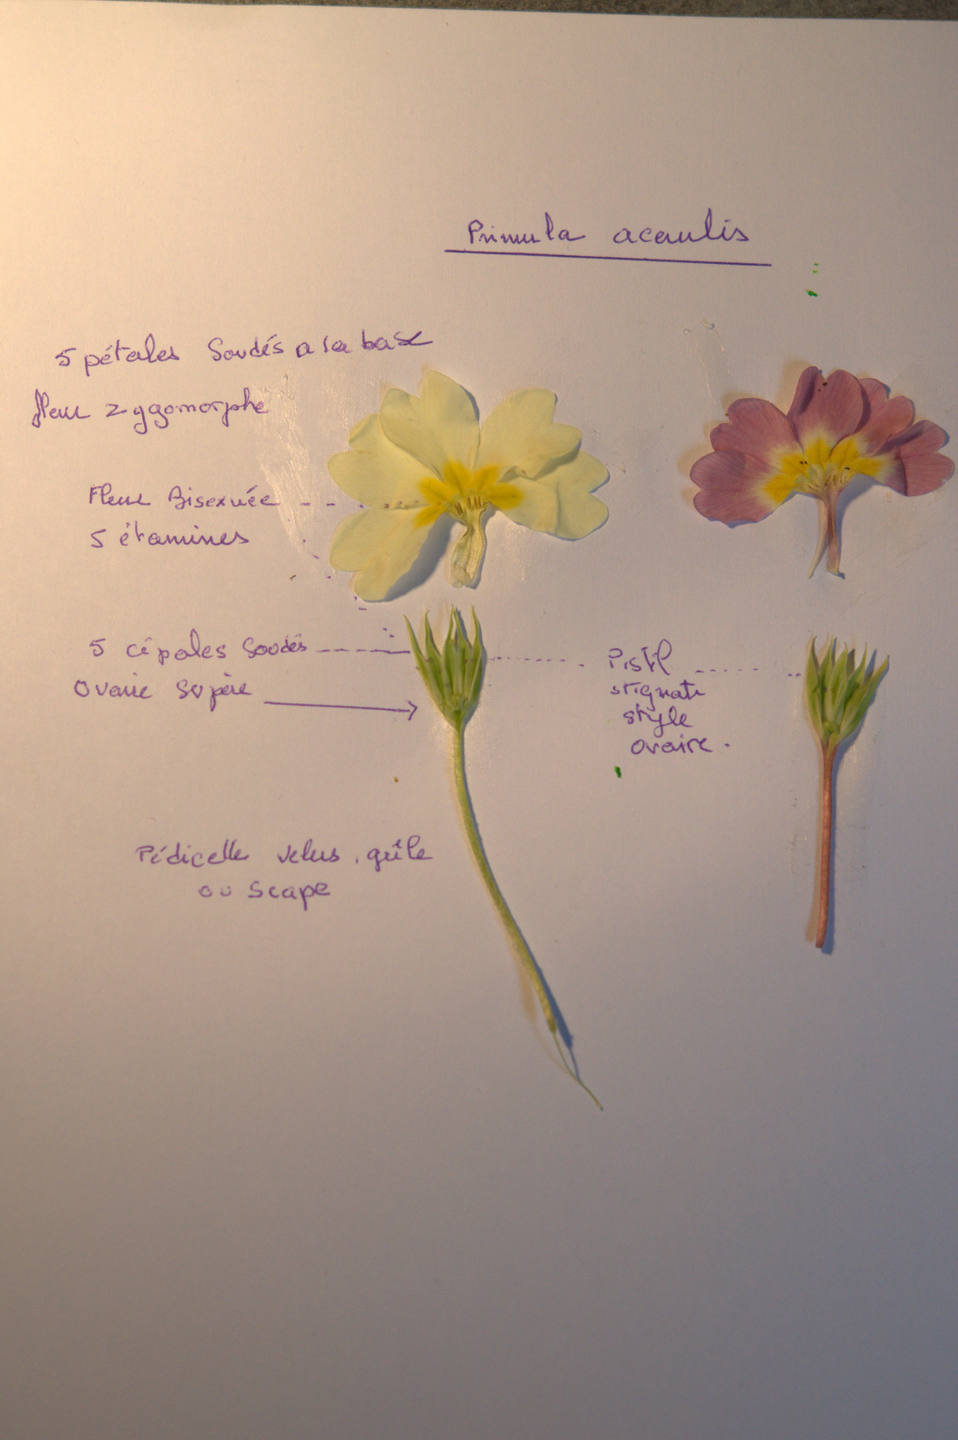 Primula acaulis
5 pétales soudés a la base
fleur zygomorphe
Fleur Bisexuée
5 étamines
5 cépales soudés
Ovaire supère
Pistil
stigmate
style
ovaire.
Pédicelle velus, grêle
ou scape